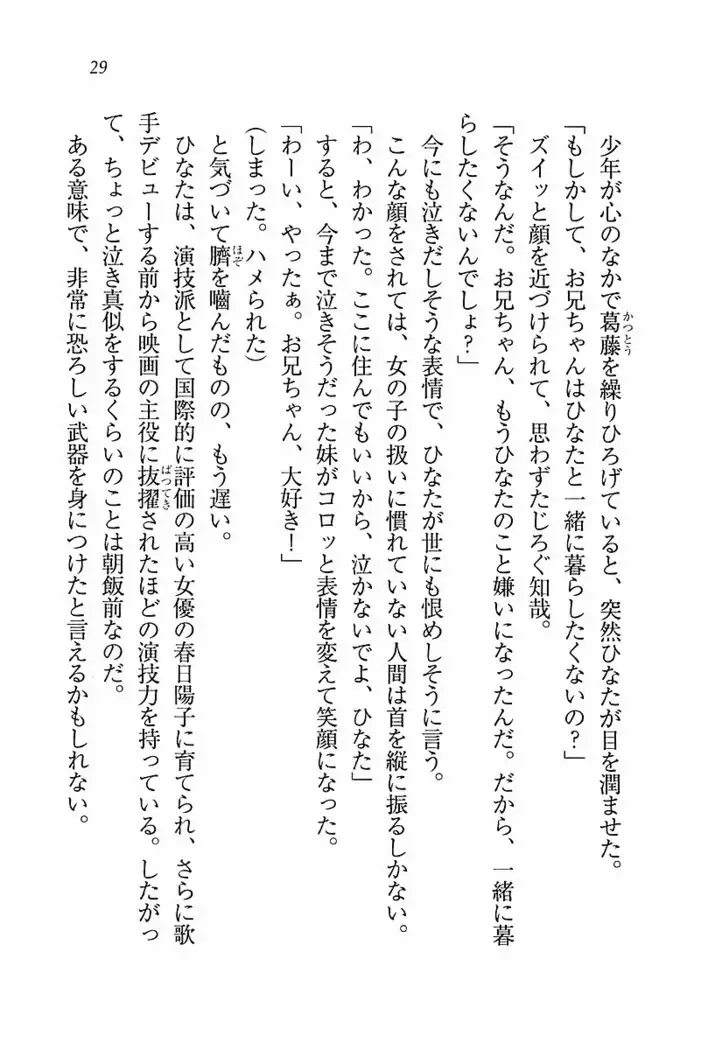 29
少年が心のなかで葛藤を繰りひろげていると、突然ひなたが目を潤ませた。
かつとう
「もしかして、お兄ちゃんはひなたと一緒に暮らしたくないの？」
ズイッと顔を近づけられて、思わずたじろぐ知哉。
「そうなんだ。お兄ちゃん、もうひなたのこと嫌いになったんだ。だから、一緒に暮
らしたくないんでしょ？」
今にも泣きだしそうな表情で、ひなたが世にも恨めしそうに言う。
こんな顔をされては、女の子の扱いに慣れていない人間は首を縦に振るしかない。
「わ、わかった。ここに住んでもいいから、泣かないでよ、ひなた」
すると、今まで泣きそうだった妹がコロッと表情を変えて笑顔になった。
「わーい、やったぁ。お兄ちゃん、大好き！」
(しまった。ハメられた)
と気づいて臍を嚙んだものの、もう遅い。
ほぞ
ひなたは、演技派として国際的に評価の高い女優の春日陽子に育てられ、さらに歌
手デビューする前から映画の主役に抜擢されたほどの演技力を持っている。したがっ
ばつてき
て、ちょっと泣き真似をするくらいのことは朝飯前なのだ。
ある意味で、非常に恐ろしい武器を身につけたと言えるかもしれない。